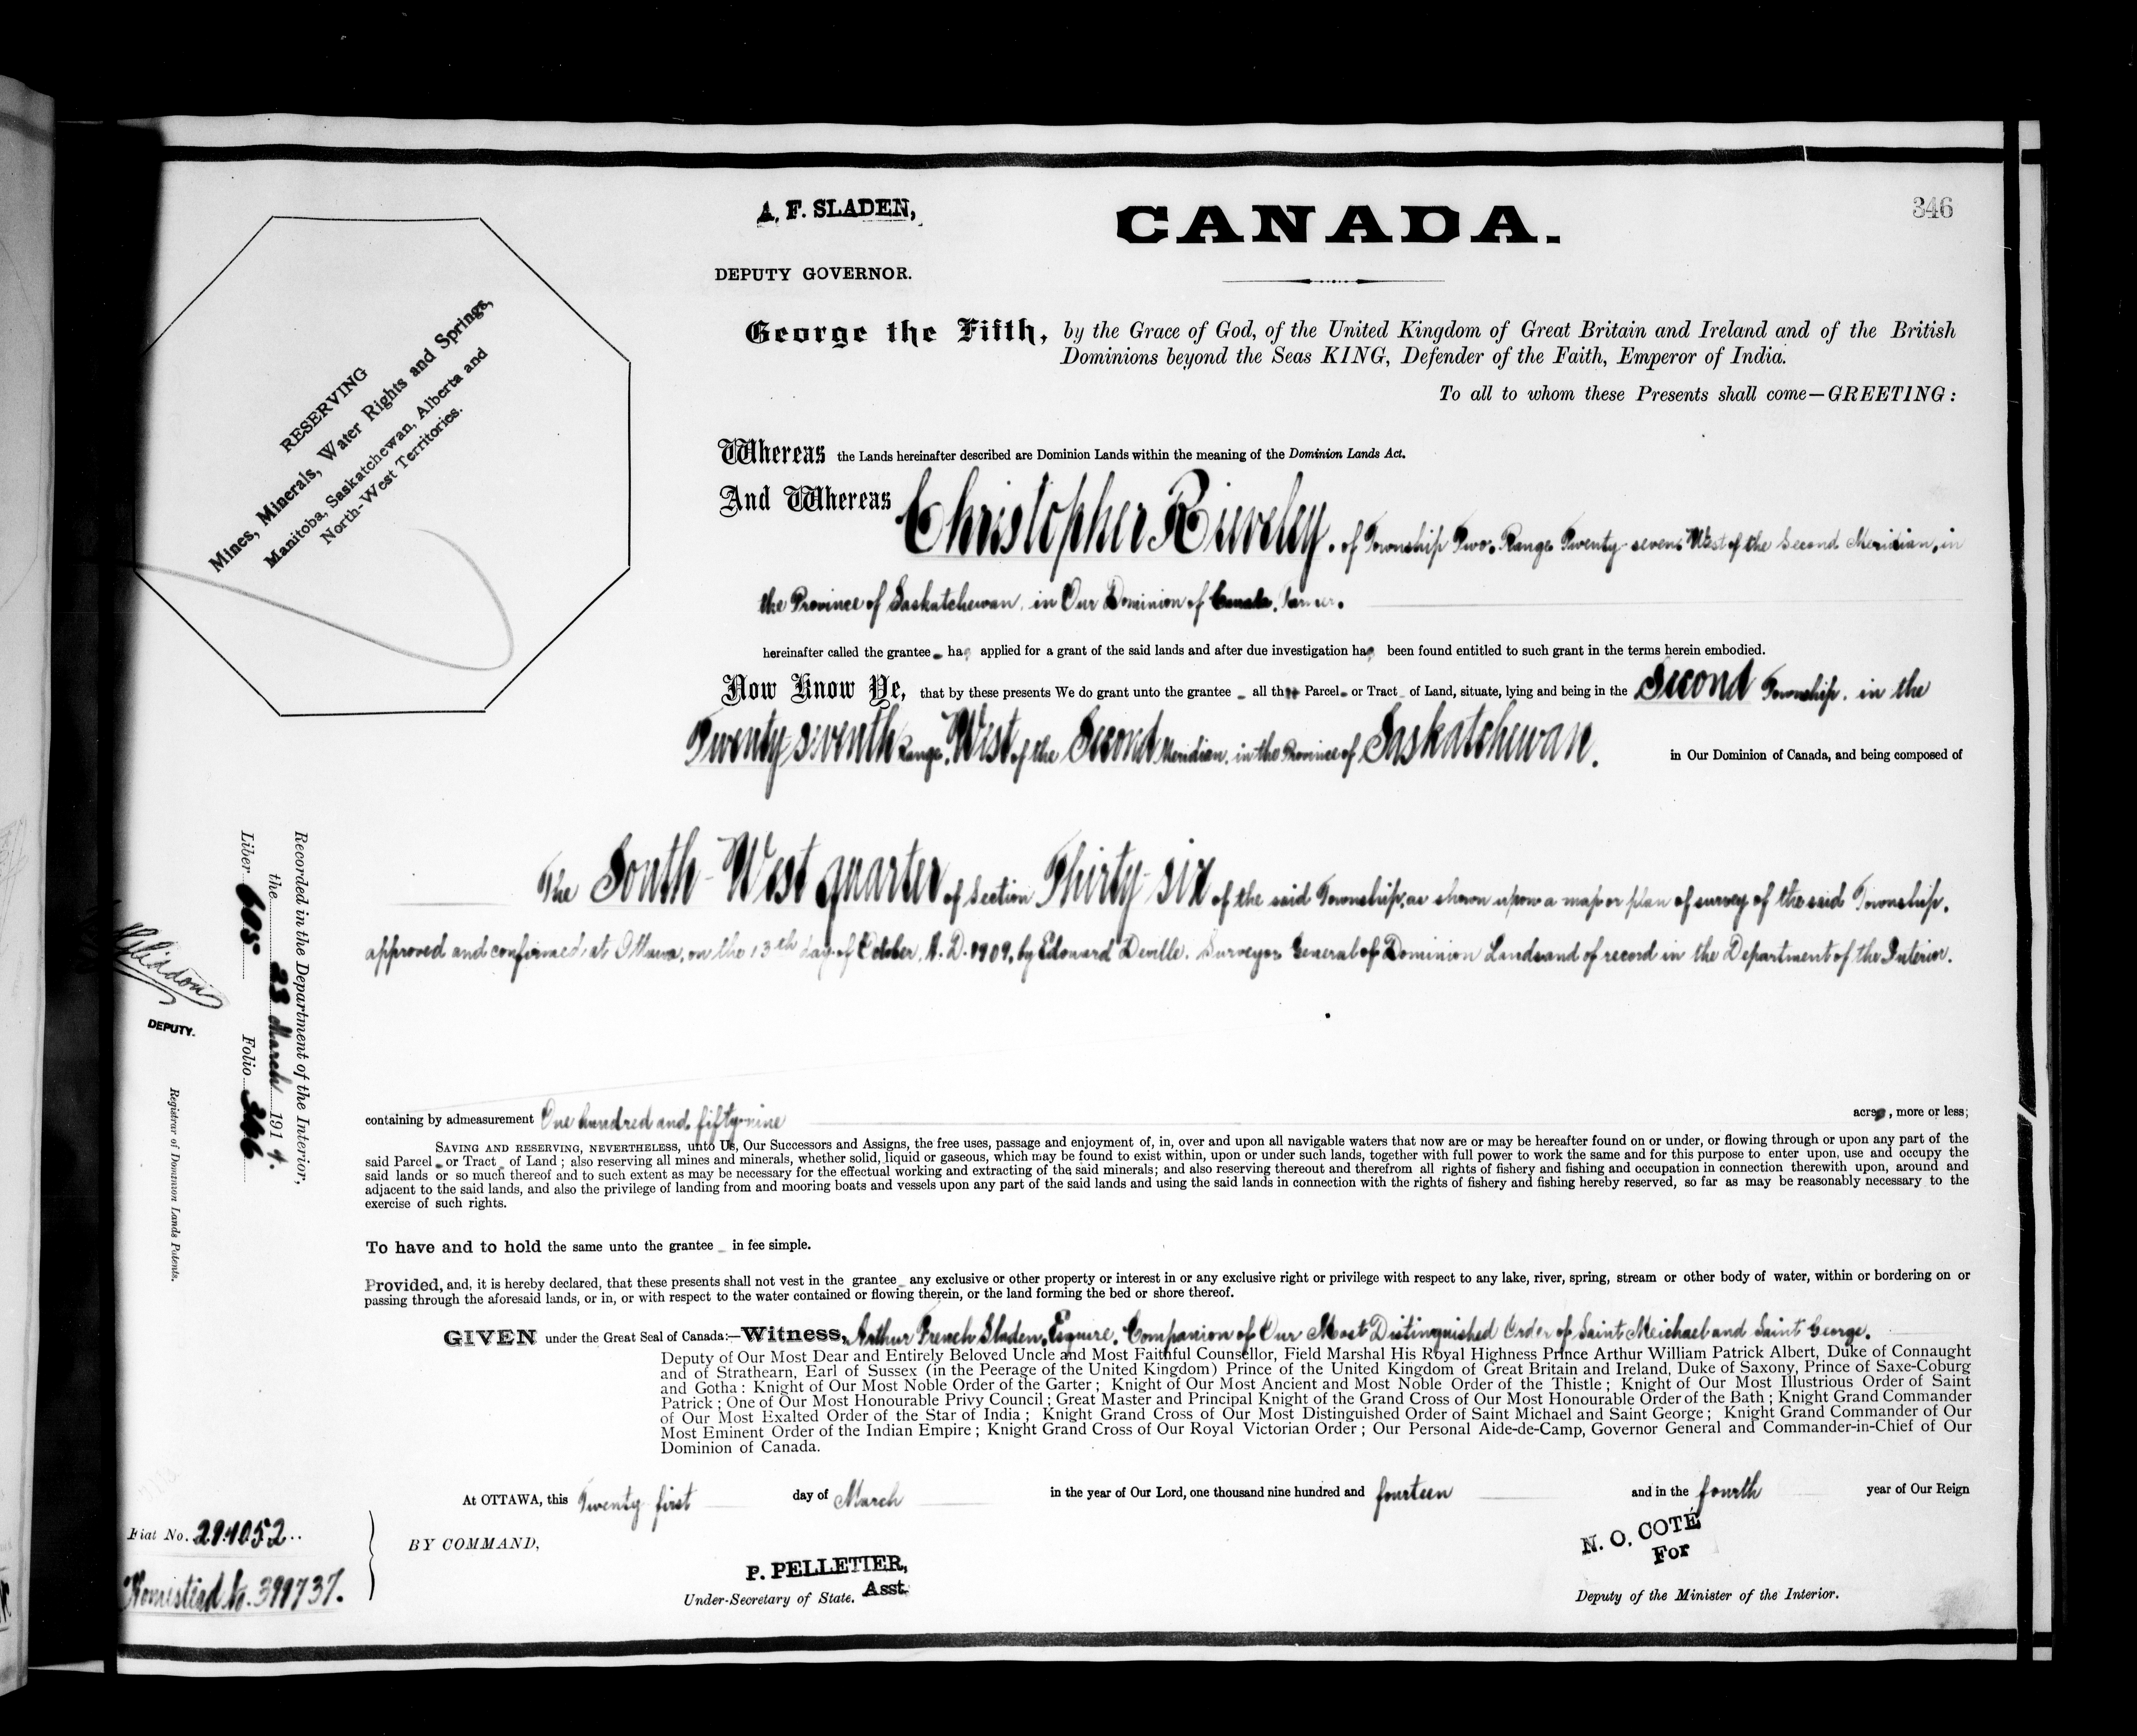 346
A. F. SLADEN,
DEPUTY GOVERNOR.
CANADA.
RESERVING
Mines, Minerals, Water Rights and Springs,
Manitoba, Saskatchewan, Alberta and
North-West Territories.
George the Fifth, by the Grace of God, of the United Kingdom of Great Britain and Ireland and of the British
Dominions beyond the Seas KING, Defender of the Faith, Emperor of India.
To all to whom these Presents shall come—GREETING:
Whereas the Lands hereinafter described are Dominion Lands within the meaning of the Dominion Lands Act.
And Whereas Christopher Rieveley, of Township Two, Range Twenty-seven, West of the Second Meridian, in
the Province of Saskatchewan, in Our Dominion of Canada, Farmer.
hereinafter called the grantee has applied for a grant of the said lands and after due investigation has been found entitled to such grant in the terms herein embodied.
Now Know Ye, that by these presents We do grant unto the grantee all that Parcel or Tract of Land, situate, lying and being in the Second Township, in the
Twenty-seventh Range, West of the Second Meridian, in the Province of Saskatchewan, in Our Dominion of Canada, and being composed of
The South-West quarter of Section Thirty-six of the said Township, as shown upon a map or plan of survey of the said Township,
approved and confirmed at Ottawa, on the 13th day of October, A. D. 1909, by Edouard Deville, Surveyor General of Dominion Lands and of record in the Department of the Interior.
containing by admeasurement One hundred and fifty-nine acres, more or less;
SAVING AND RESERVING, NEVERTHELESS, unto Us, Our Successors and Assigns, the free uses, passage and enjoyment of, in, over and upon all navigable waters that now are or may be hereafter found on or under, or flowing through or upon any part of the
said Parcel or Tract of Land; also reserving all mines and minerals, whether solid, liquid or gaseous, which may be found to exist within, upon or under such lands, together with full power to work the same and for this purpose to enter upon, use and occupy the
said lands or so much thereof and to such extent as may be necessary for the effectual working and extracting of the said minerals; and also reserving thereout and therefrom all rights of fishery and fishing and occupation in connection therewith upon, around and
adjacent to the said lands, and also the privilege of landing from and mooring boats and vessels upon any part of the said lands and using the said lands in connection with the rights of fishery and fishing hereby reserved, so far as may be reasonably necessary to the
exercise of such rights.
To have and to hold the same unto the grantee in fee simple.
Provided, and, it is hereby declared, that these presents shall not vest in the grantee any exclusive or other property or interest in or any exclusive right or privilege with respect to any lake, river, spring, stream or other body of water, within or bordering on or
passing through the aforesaid lands, or in, or with respect to the water contained or flowing therein, or the land forming the bed or shore thereof.
GIVEN under the Great Seal of Canada:—Witness, Arthur French Sladen, Esquire, Companion of Our Most Distinguished Order of Saint Meichael and Saint George.
Deputy of Our Most Dear and Entirely Beloved Uncle and Most Faithful Counsellor, Field Marshal His Royal Highness Prince Arthur William Patrick Albert, Duke of Connaught
and of Strathearn, Earl of Sussex (in the Peerage of the United Kingdom) Prince of the United Kingdom of Great Britain and Ireland, Duke of Saxony, Prince of Saxe-Coburg
and Gotha: Knight of Our Most Noble Order of the Garter; Knight of Our Most Ancient and Most Noble Order of the Thistle; Knight of Our Most Illustrious Order of Saint
Patrick; One of Our Most Honourable Privy Council; Great Master and Principal Knight of the Grand Cross of Our Most Honourable Order of the Bath; Knight Grand Commander
of Our Most Exalted Order of the Star of India; Knight Grand Cross of Our Most Distinguished Order of Saint Michael and Saint George; Knight Grand Commander of Our
Most Eminent Order of the Indian Empire; Knight Grand Cross of Our Royal Victorian Order; Our Personal Aide-de-Camp, Governor General and Commander-in-Chief of Our
Dominion of Canada.
At OTTAWA, this Twenty first day of March in the year of Our Lord, one thousand nine hundred and fourteen and in the fourth year of Our Reign
BY COMMAND,
P. PELLETIER,
Under-Secretary of State. Asst.
N. O. COTÉ
For
Deputy of the Minister of the Interior.
Recorded in the Department of the Interior,
the 23 March 1914.
Liber 605 Folio 346
DEPUTY.
Registrar of Dominion Lands Patents.
Fiat No. 291052
Homestead No. 399737.